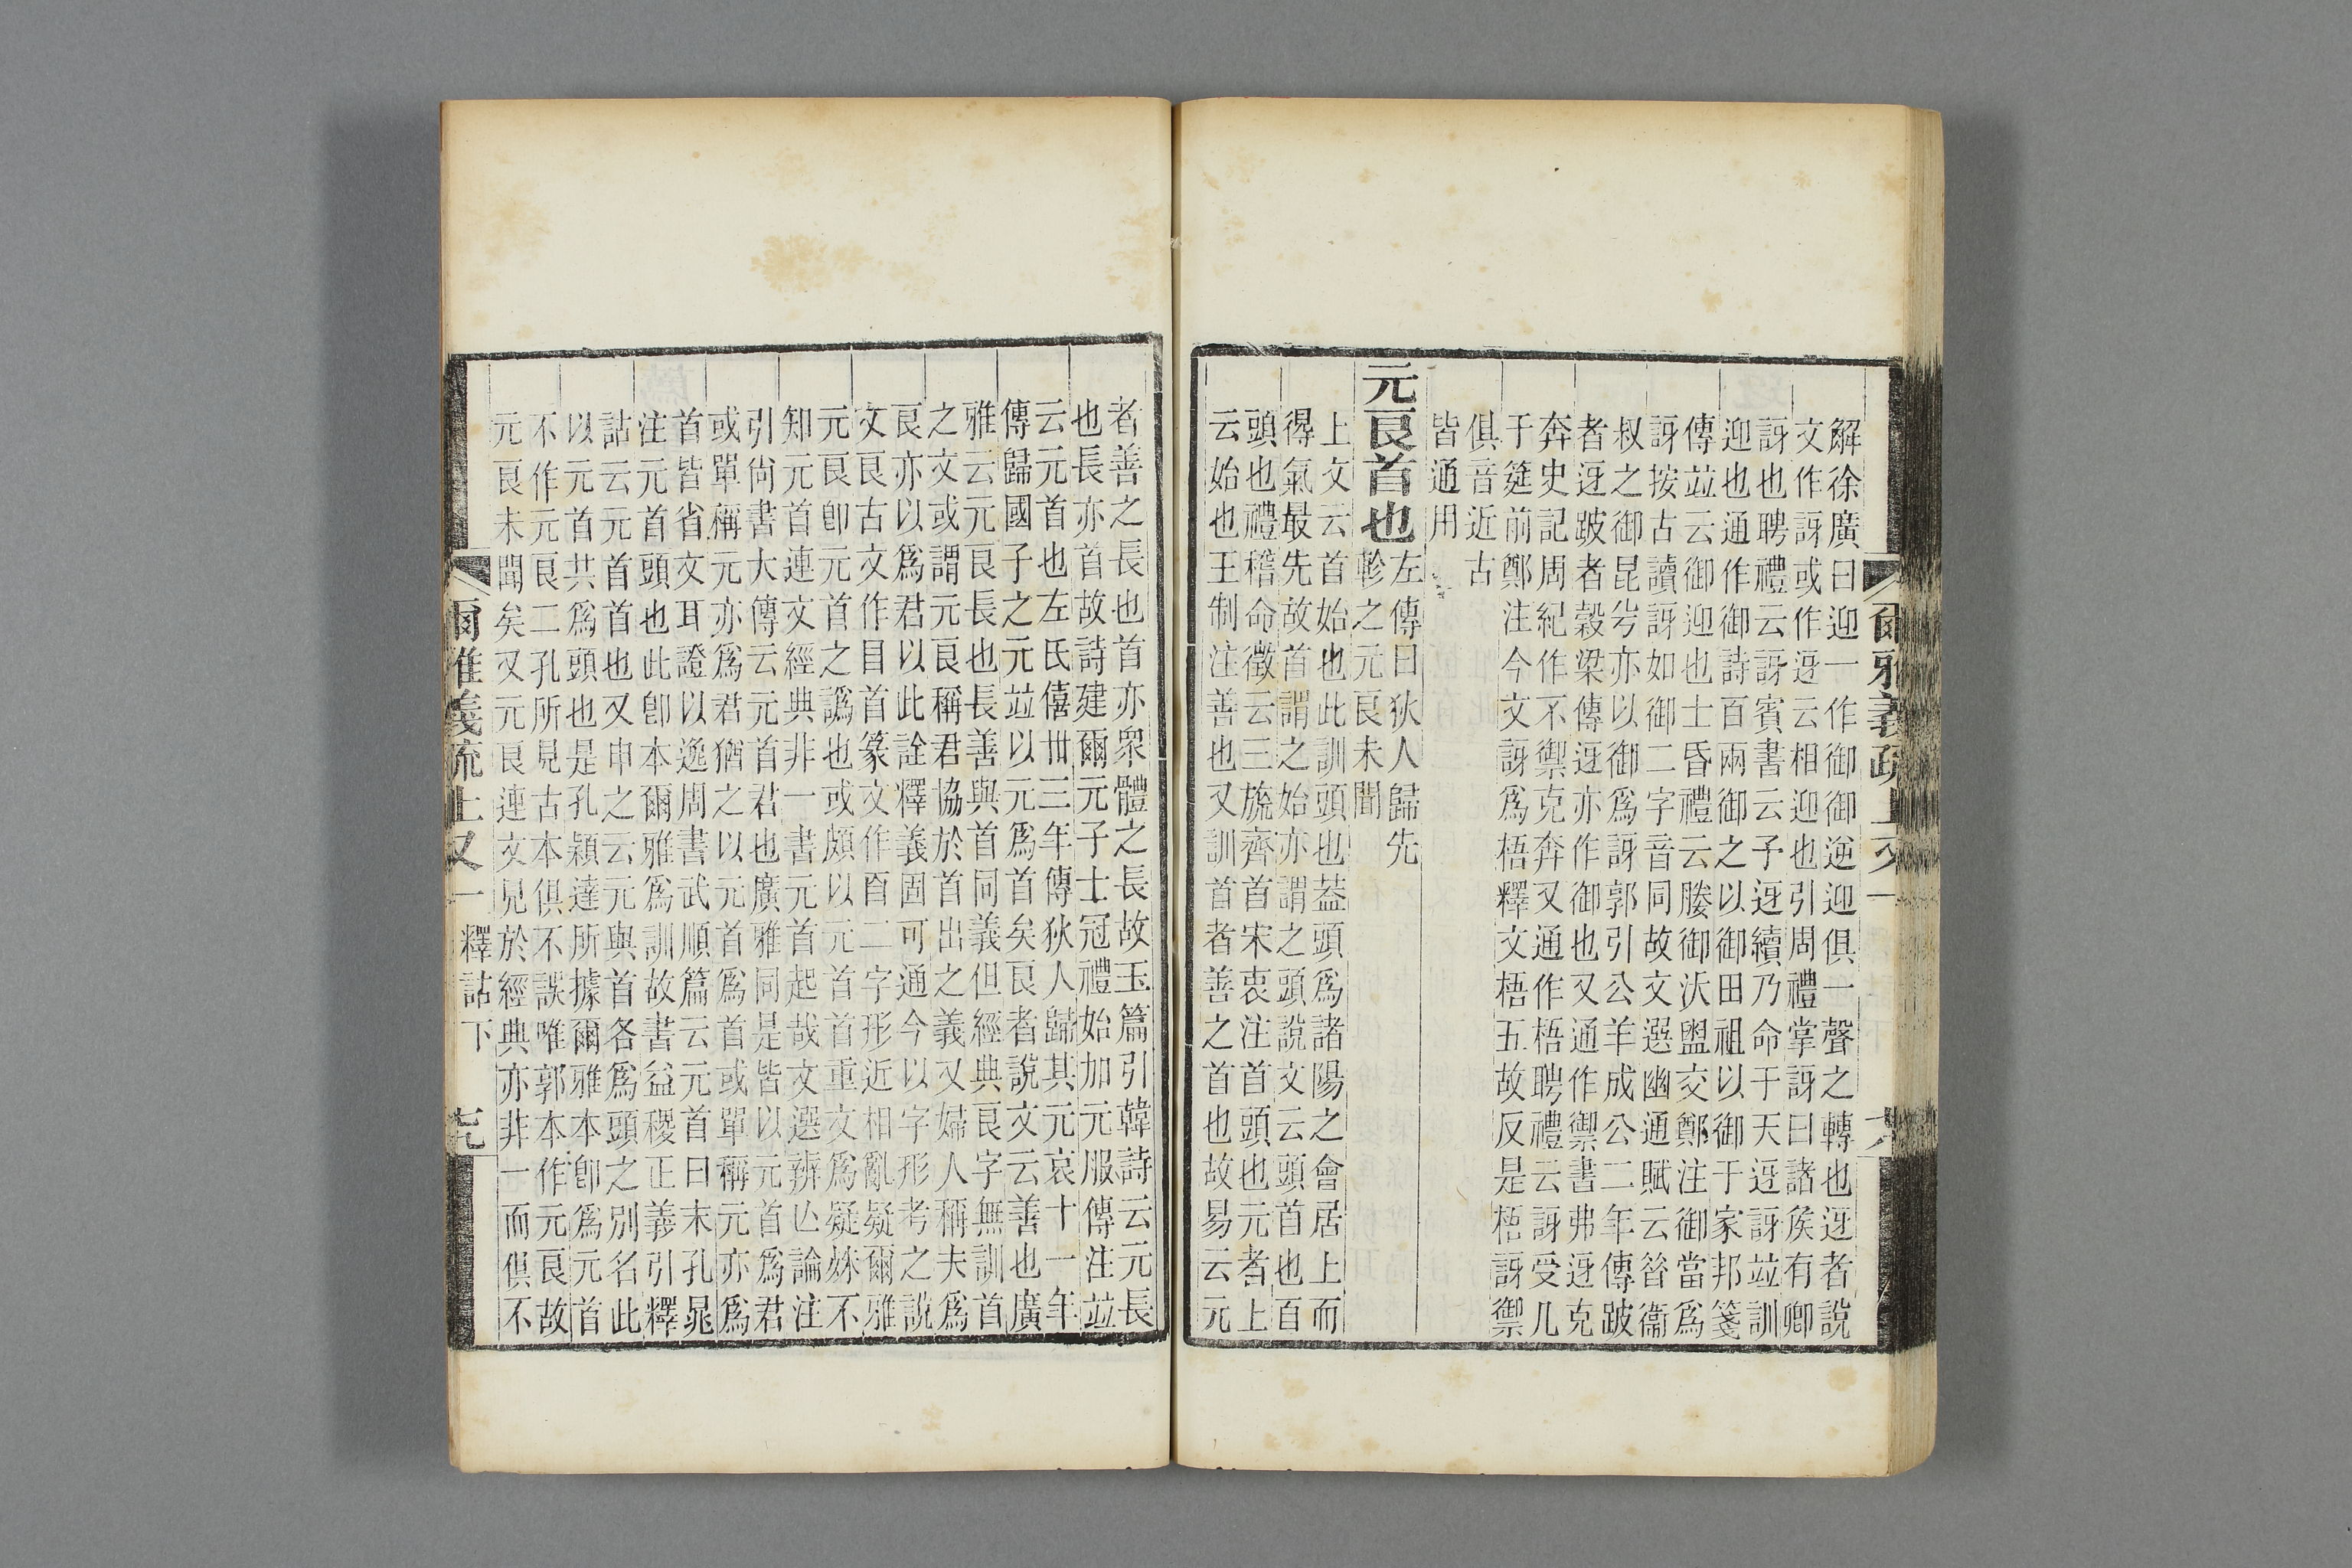 解徐廣曰迎一作御御逆迎俱一聲之轉也迓者說
文作訝或作迓云相迎也引周禮掌訝曰諸矦有卿
訝也聘禮云訝賓書云予迓續乃命于天迓訝竝訓
迎也通作御詩百兩御之以御田祖以御于家邦箋
傳竝云御迎也士昏禮云媵御沃盥交鄭注御當爲
訝按古讀訝如御二字音同故文選幽通賦云昝衞
叔之御昆兮亦以御爲訝郭引公羊成公二年傳跛
者迓跛者穀梁傳迓亦作御也又通作禦書弗迓克
奔史記周紀作不禦克奔又通作梧聘禮云訝受几
于筵前鄭注今文訝爲梧釋文梧五故反是梧訝禦
俱音近古
皆通用
元良首也
左傳曰狄人歸先
軫之元良未聞
上文云首始也此訓頭也葢頭爲諸陽之會居上而
得氣最先故首謂之始亦謂之頭說文云頭首也百
頭也禮稽命徵云三旒齊首宋衷注首頭也元者上
云始也王制注善也又訓首者善之首也故易云元
爾雅義疏上又一
者善之長也首亦衆體之長故玉篇引韓詩云元長
也長亦首故詩建爾元子士冠禮始加元服傳注竝
云元首也左氏僖卅三年傳狄人歸其元哀十一年
傳歸國子之元竝以元爲首矣良者說文云善也廣
雅云元良長也長善與首同義但經典良字無訓首
之文或謂元良稱君協於首出之義又婦人稱夫爲
良亦以爲君以此詮釋義固可通今以字形考之說
文良古文作目首篆文作𦣻二字形近相亂疑爾雅
元良卽元首之譌也或頗以元首首重文爲疑殊不
知元首連文經典非一書元首起哉文選辨亾論注
引尚書大傳云元首君也廣雅同是皆以元首爲君
或單稱元亦爲君猶之以元首爲首或單稱元亦爲
首皆省文耳證以逸周書武順篇云元首曰末孔晁
注元首頭也此卽本爾雅爲訓故書益稷正義引釋
詁云元首首也又申之云元與首各爲頭之別名此
以元首共爲頭也是孔穎達所據爾雅本卽爲元首
不作元良二孔所見古本俱不誤唯郭本作元良故
元良未聞矣又元良連文見於經典亦非一而俱不
爾雅義疏上又一　釋詁下